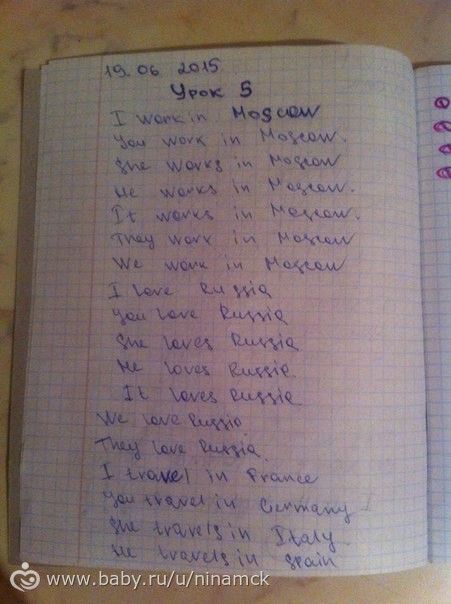 19.06 2015
Урок 5
I work in Moscow
You work in Moscow.
She works in Moscow
He works in Moscow.
It works in Moscow.
They work in Moscow
We work in Moscow
I love Russia
You love Russia
She loves Russia
He loves Russia
It loves Russia
We love Russia
They love Russia.
I travel in France
You travel in Germany
She travels in Italy
He travels in Spain
www.baby.ru/u/ninamck